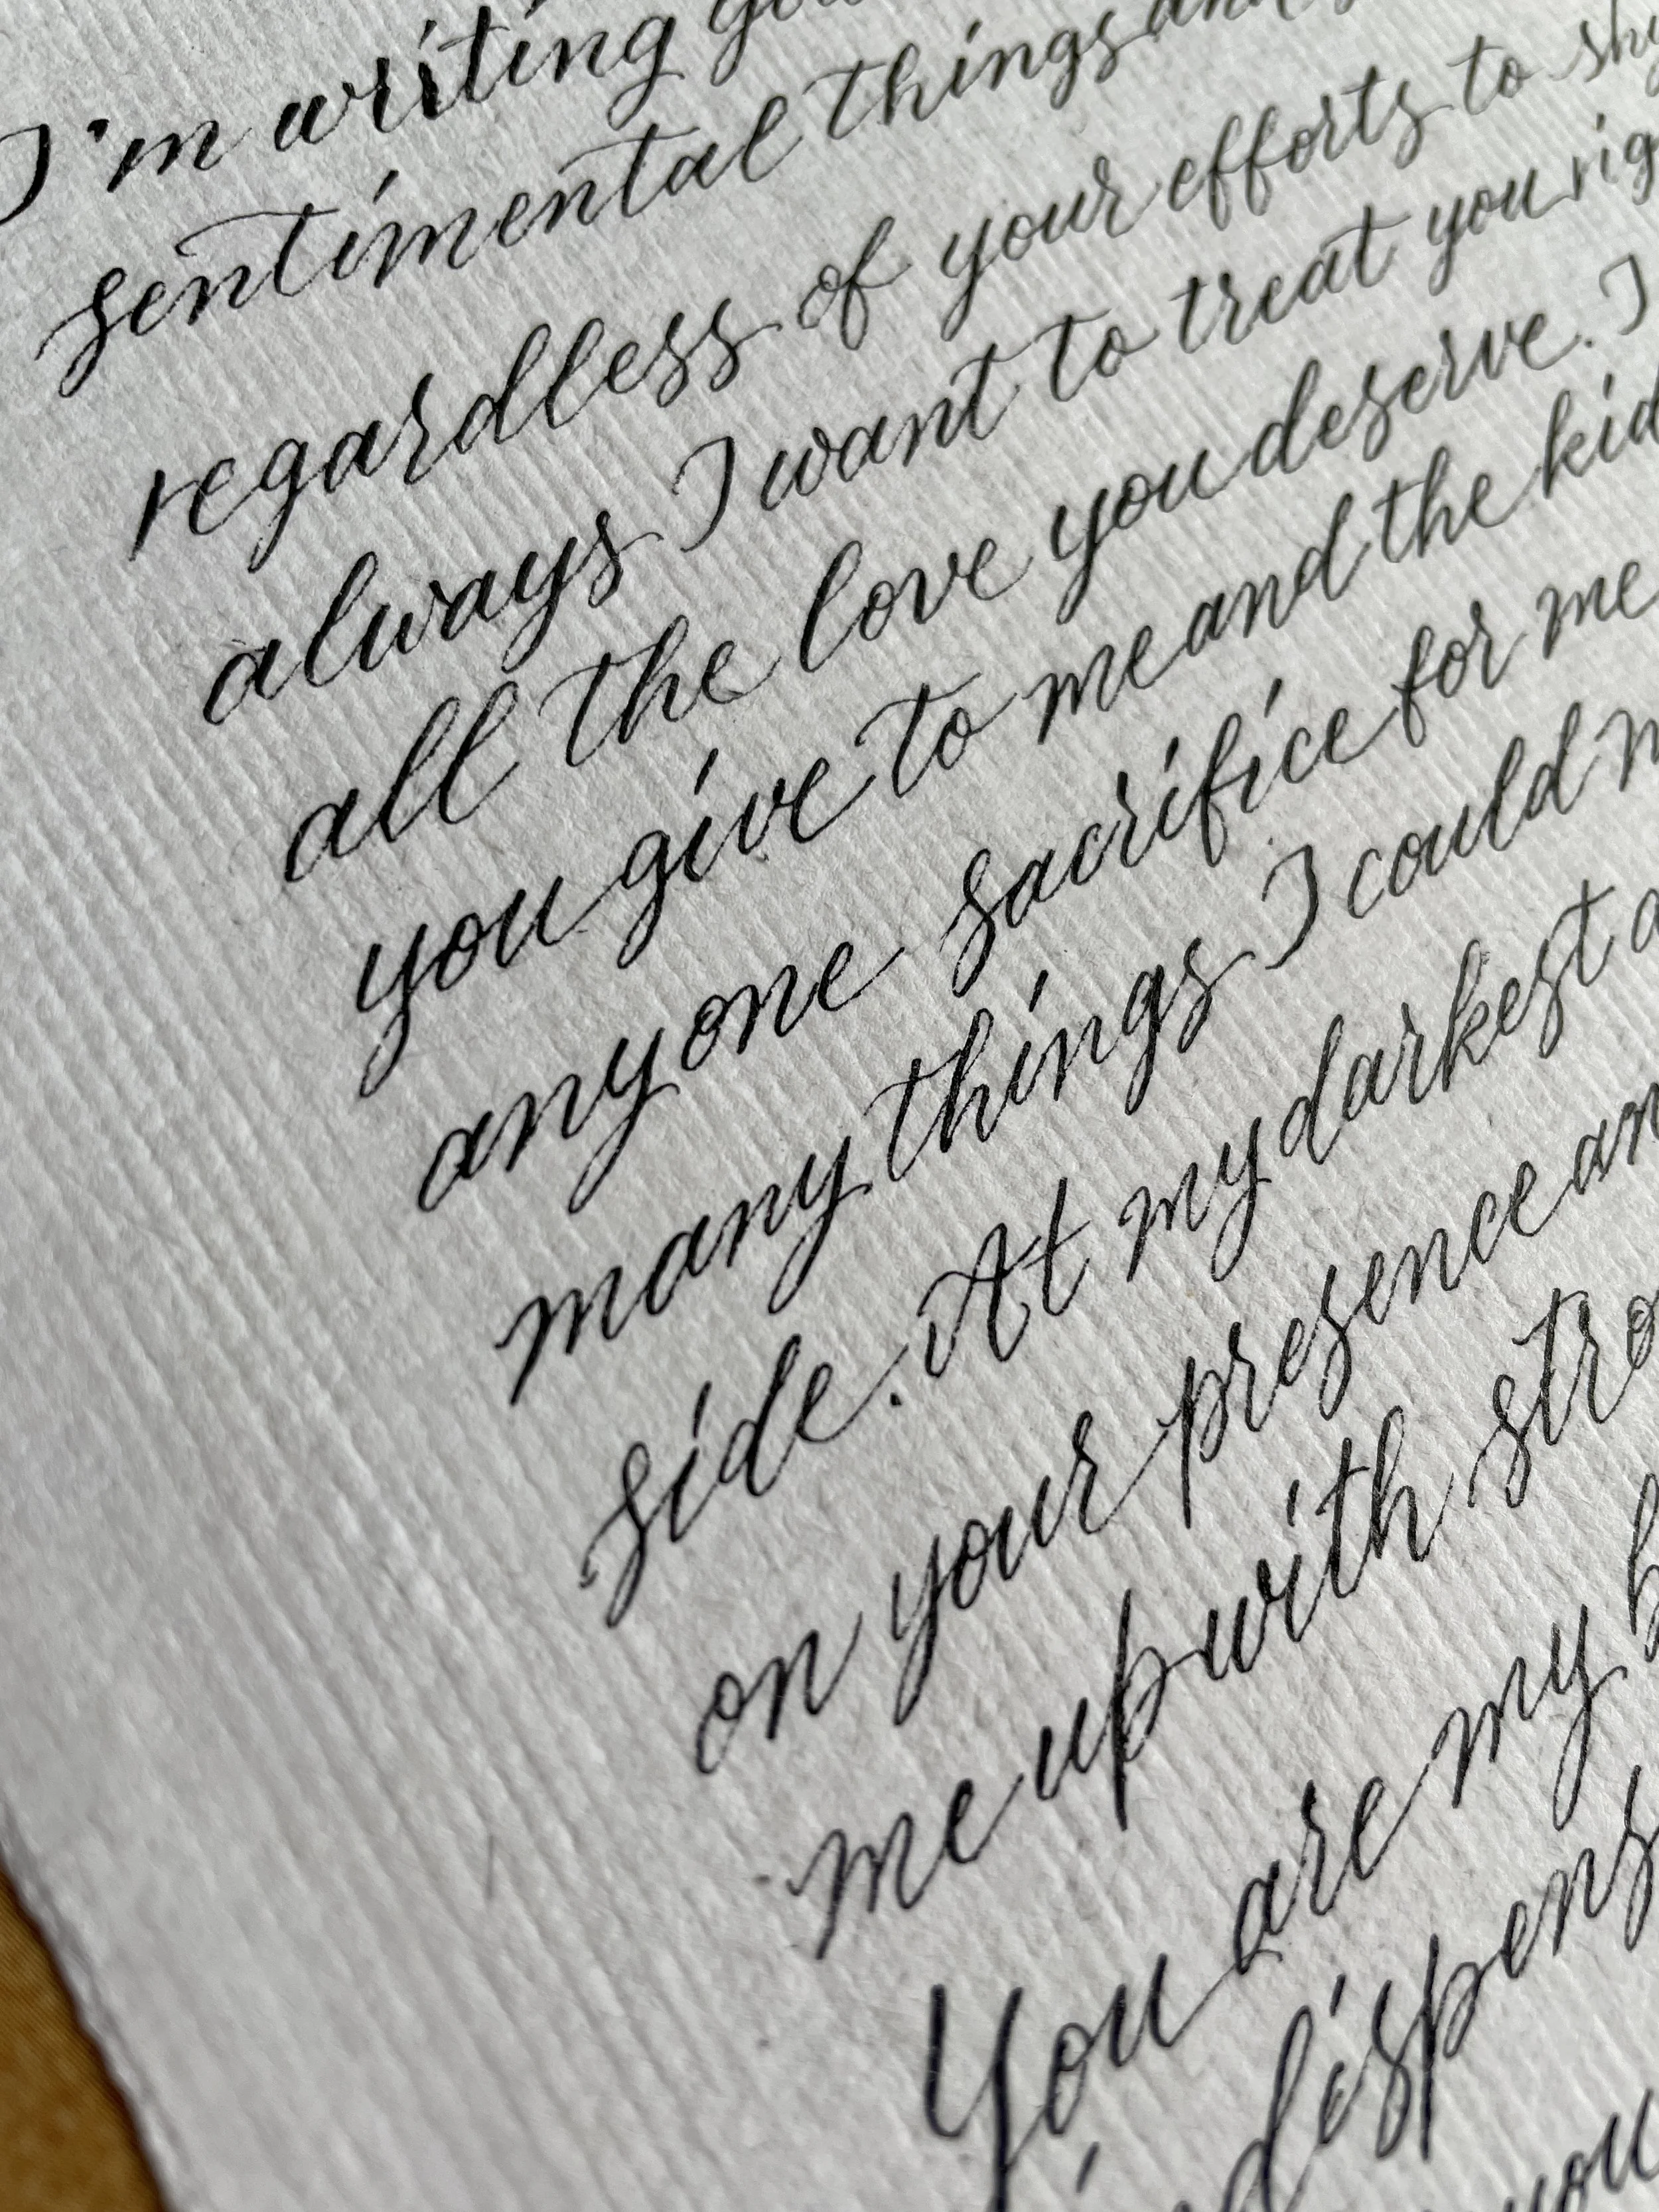 I'm writing you
sentimental things and
regardless of your efforts to shy
always I want to treat you rig
all the love you deserve. I
you give to me and the kid
anyone sacrifice for me
many things I could n
side. At my darkest a
on your presence an
me up with stro
You are my b
indispens
you